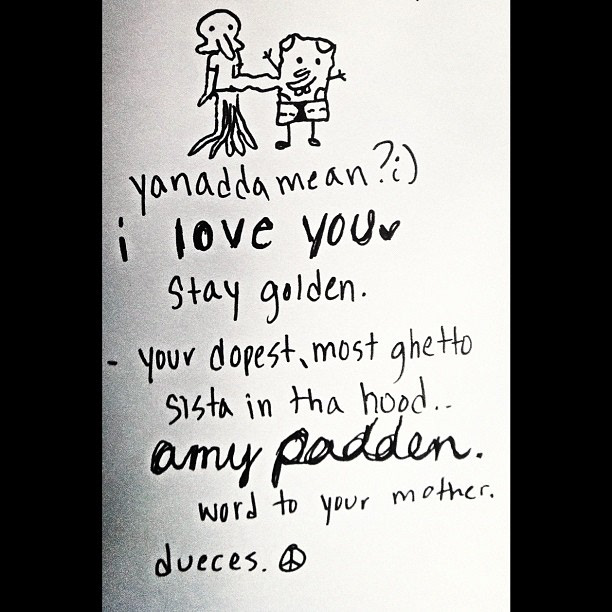 yanadda mean?;)
i love you♥
stay golden.
- your dopest, most ghetto
sista in tha hood..
amy padden.
word to your mother.
dueces. ☮